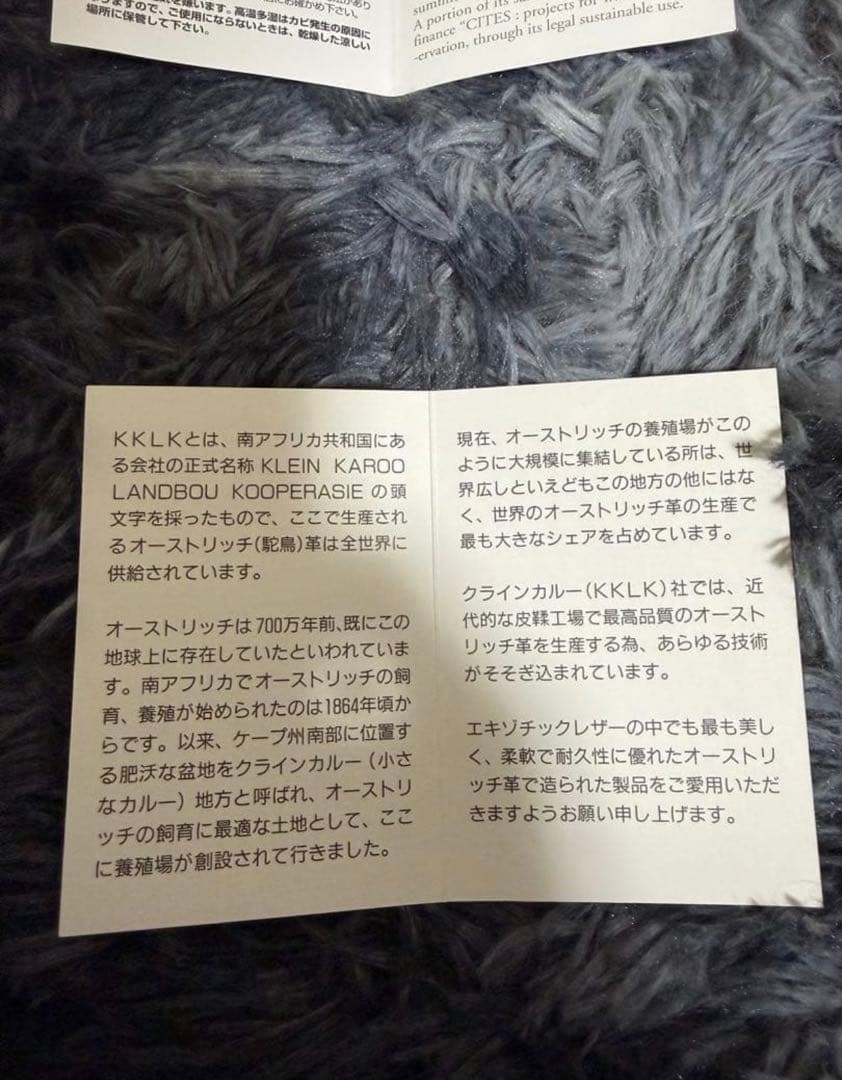 にお確かめ下さい。
気を嫌います。高温多湿はカビ発生の原因に
りますので、ご使用にならないときは、乾燥した涼しい
場所に保管して下さい。
A portion of its
finance “CITES : projects for
-ervation, through its legal sustainable use.
KKLKとは、南アフリカ共和国にあ
る会社の正式名称 KLEIN KAROO
LANDBOU KOOPERASIE の頭
文字を採ったもので、ここで生産され
るオーストリッチ(駝鳥)革は全世界に
供給されています。
オーストリッチは700万年前、既にこの
地球上に存在していたといわれていま
す。南アフリカでオーストリッチの飼
育、養殖が始められたのは1864年頃か
らです。以来、ケープ州南部に位置す
る肥沃な盆地をクラインカルー(小さ
なカルー)地方と呼ばれ、オーストリ
ッチの飼育に最適な土地として、ここ
に養殖場が創設されて行きました。
現在、オーストリッチの養殖場がこの
ように大規模に集結している所は、世
界広しといえどもこの地方の他にはな
く、世界のオーストリッチ革の生産で
最も大きなシェアを占めています。
クラインカルー(KKLK)社では、近
代的な皮鞣工場で最高品質のオースト
リッチ革を生産する為、あらゆる技術
がそそぎ込まれています。
エキゾチックレザーの中でも最も美し
く、柔軟で耐久性に優れたオーストリ
ッチ革で造られた製品をご愛用いただ
きますようお願い申し上げます。